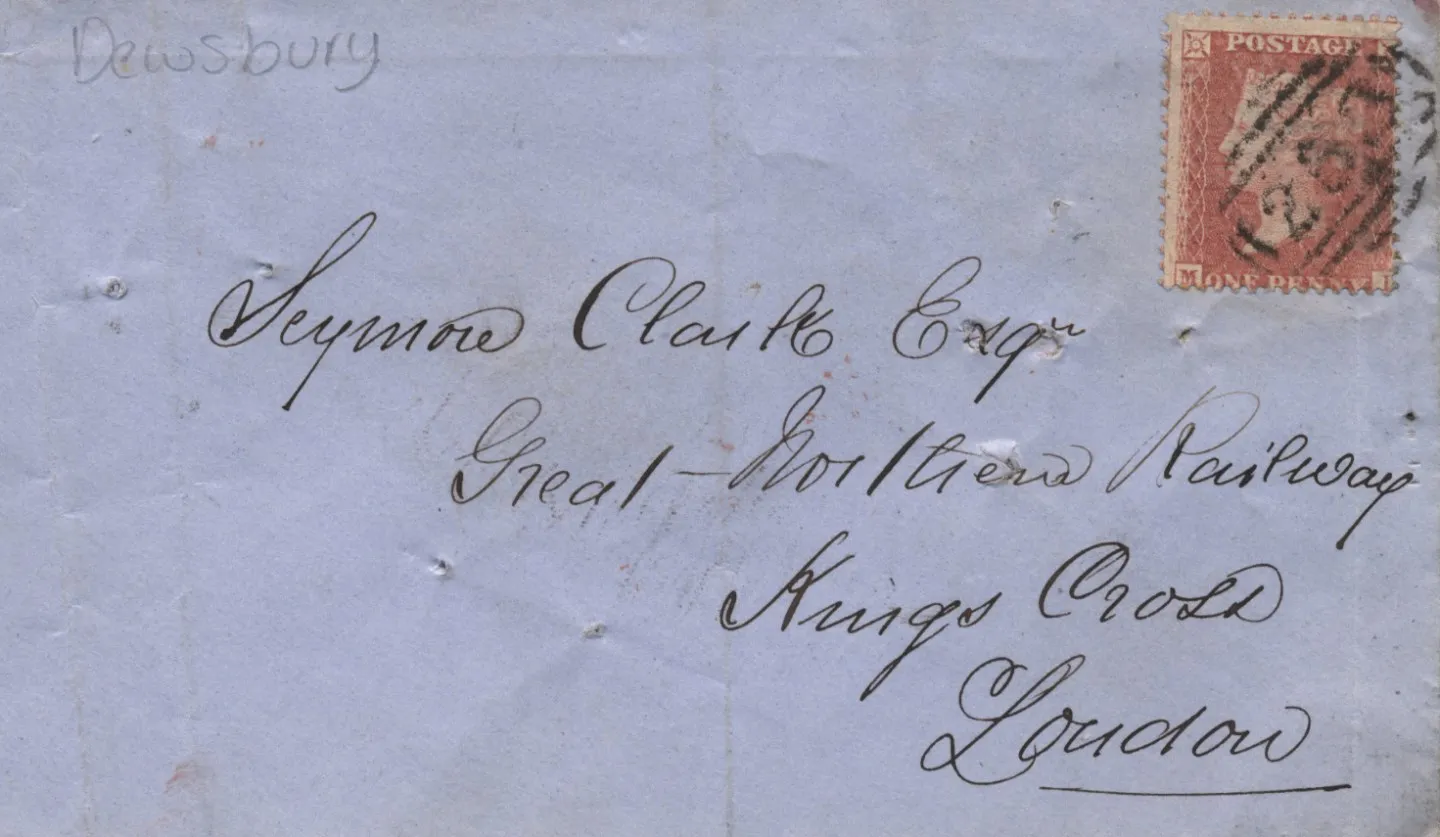 Dewsbury
POSTAGE
ONE PENNY
M
Seymore Clarke Esqr
Great Northern Railway
Kings Cross
London